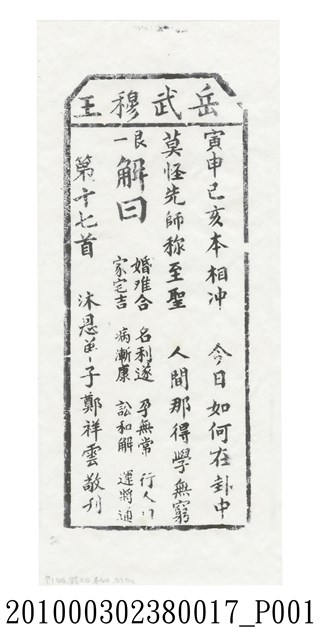 岳武穆王
寅申巳亥本相冲 今日如何在卦中
莫怪先師称至聖 人間那得學無窮
艮一
解曰
婚难合 名利遂 孕無常 行人
家宅吉 病漸康 訟和解 運將通
第十七首 沐恩弟子鄭祥雲敬刋
201000302380017_P001